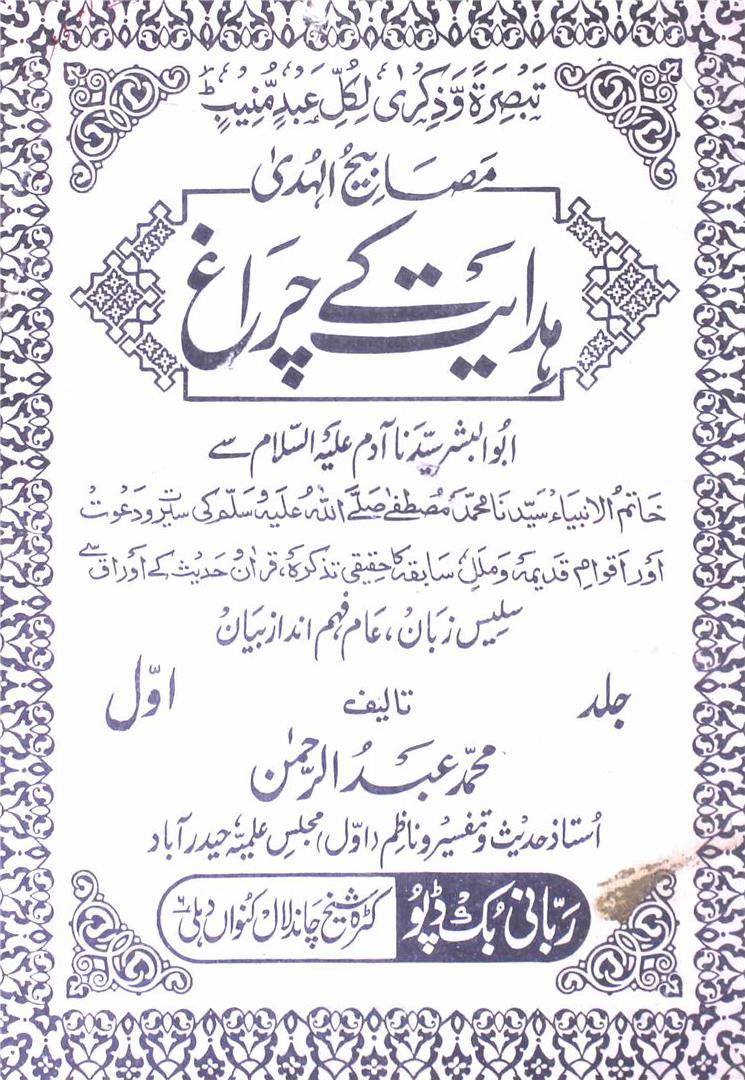 تَبْصِرَةً وَّذِكْرٰى لِكُلِّ عَبْدٍ مُّنِيْبٍ ط
مَصَابِيحُ الہُدىٰ
ہدایت کے چَراغ
ابُوالبشر سیّدنا آدم علیہ السلام سے
خاتم الانبیاء سیّدنا محمّد مُصطفےٰ صلّے اللہ علیہ وسلّم کی سیرت و دعوت
اور اقوامِ قدیمہ و مللِ سابقہ کا حقیقی تذکرہ، قرآن و حدیث کے اوراق سے
سلیس زبان، عام فہم اندازِ بیان
جلد اوّل
تالیف
محمّد عبدُ الرحمٰن
اُستاذ حدیث و تفسیر و ناظم (اوّل) مجلس علمیّہ حیدرآباد
ربّانی بُک ڈپو کٹرہ شیخ چاند لال کنواں دہلی ۶